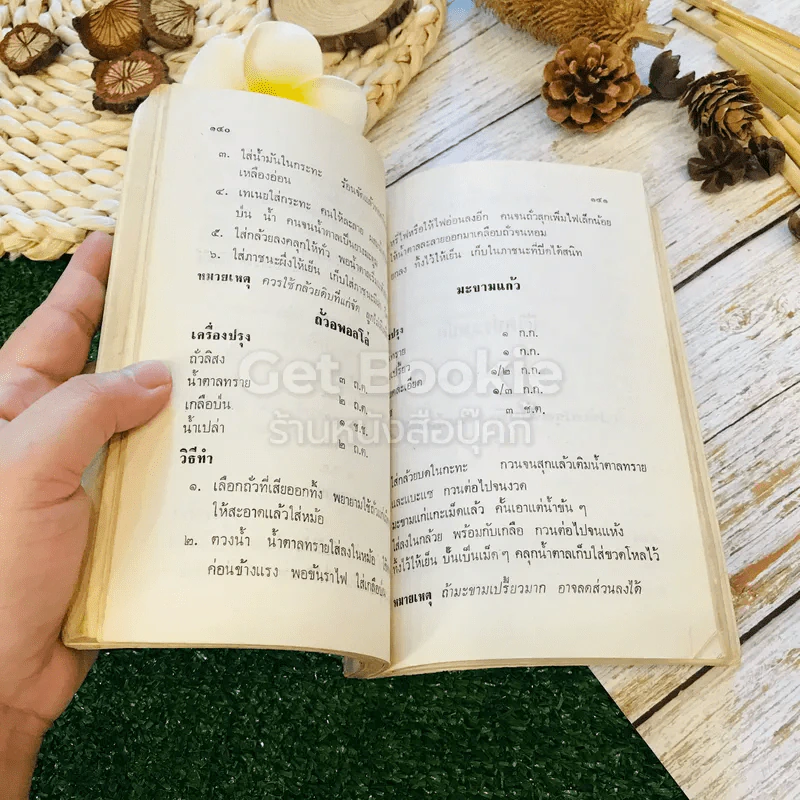 ๑๔๐
๓. ใส่น้ำมันในกระทะ ร้อนจัดแล้ว
เหลืองอ่อน
๔. เทเนยใส่กระทะ คนให้ละลาย
ป่น น้ำ คนจนน้ำตาลเป็นยางมะตูม
๕. ใส่กล้วยลงคลุกให้ทั่ว พอน้ำตาล
๖. ใส่ภาชนะผึ่งให้เย็น เก็บใส่ภาชนะ
หมายเหตุ ควรใช้กล้วยดิบที่แก่จัด
ถั่วอพอลโล่
เครื่องปรุง
ถั่วลิสง ๓ ถ.ต.
น้ำตาลทราย ๒ ถ.ต.
เกลือป่น ๑ ช.ช.
น้ำเปล่า ๒ ถ.ต.
วิธีทำ
๑. เลือกถั่วที่เสียออกทิ้ง พยายามใช้
ให้สะอาดแล้วใส่หม้อ
๒. ตวงน้ำ น้ำตาลทรายใส่ลงในหม้อ
ค่อนข้างแรง พอขันราไฟ ใส่เกลือป่น
๑๔๑
หรี่ไฟหรือให้ไฟอ่อนลงอีก คนจนถั่วสุกเพิ่มไฟเล็กน้อย
ให้น้ำตาลละลายออกมาเคลือบถั่วจนหอม
ยกลง ทิ้งไว้ให้เย็น เก็บในภาชนะที่ปิดได้สนิท
มะขามแก้ว
ปรุง
๑ ก.ก.
ทราย ๑ ก.ก.
เปรี้ยว ๑/๒ ก.ก.
ละเอียด ๑/๓ ก.ก.
๓ ช.ต.
ใส่กล้วยบดในกะทะ กวนจนสุกแล้วเติมน้ำตาลทราย
และแบะแซ กวนต่อไปจนงวด
มะขามแก่แกะเม็ดแล้ว คั้นเอาแต่น้ำข้น ๆ
ใส่ลงในกล้วย พร้อมกับเกลือ กวนต่อไปจนแห้ง
ทิ้งไว้ให้เย็น ปั้นเป็นเม็ด ๆ คลุกน้ำตาลเก็บใส่ขวดโหลไว้
หมายเหตุ ถ้ามะขามเปรี้ยวมาก อาจลดส่วนลงได้
Get Bookie
ร้านหนังสือบุ๊คกี้